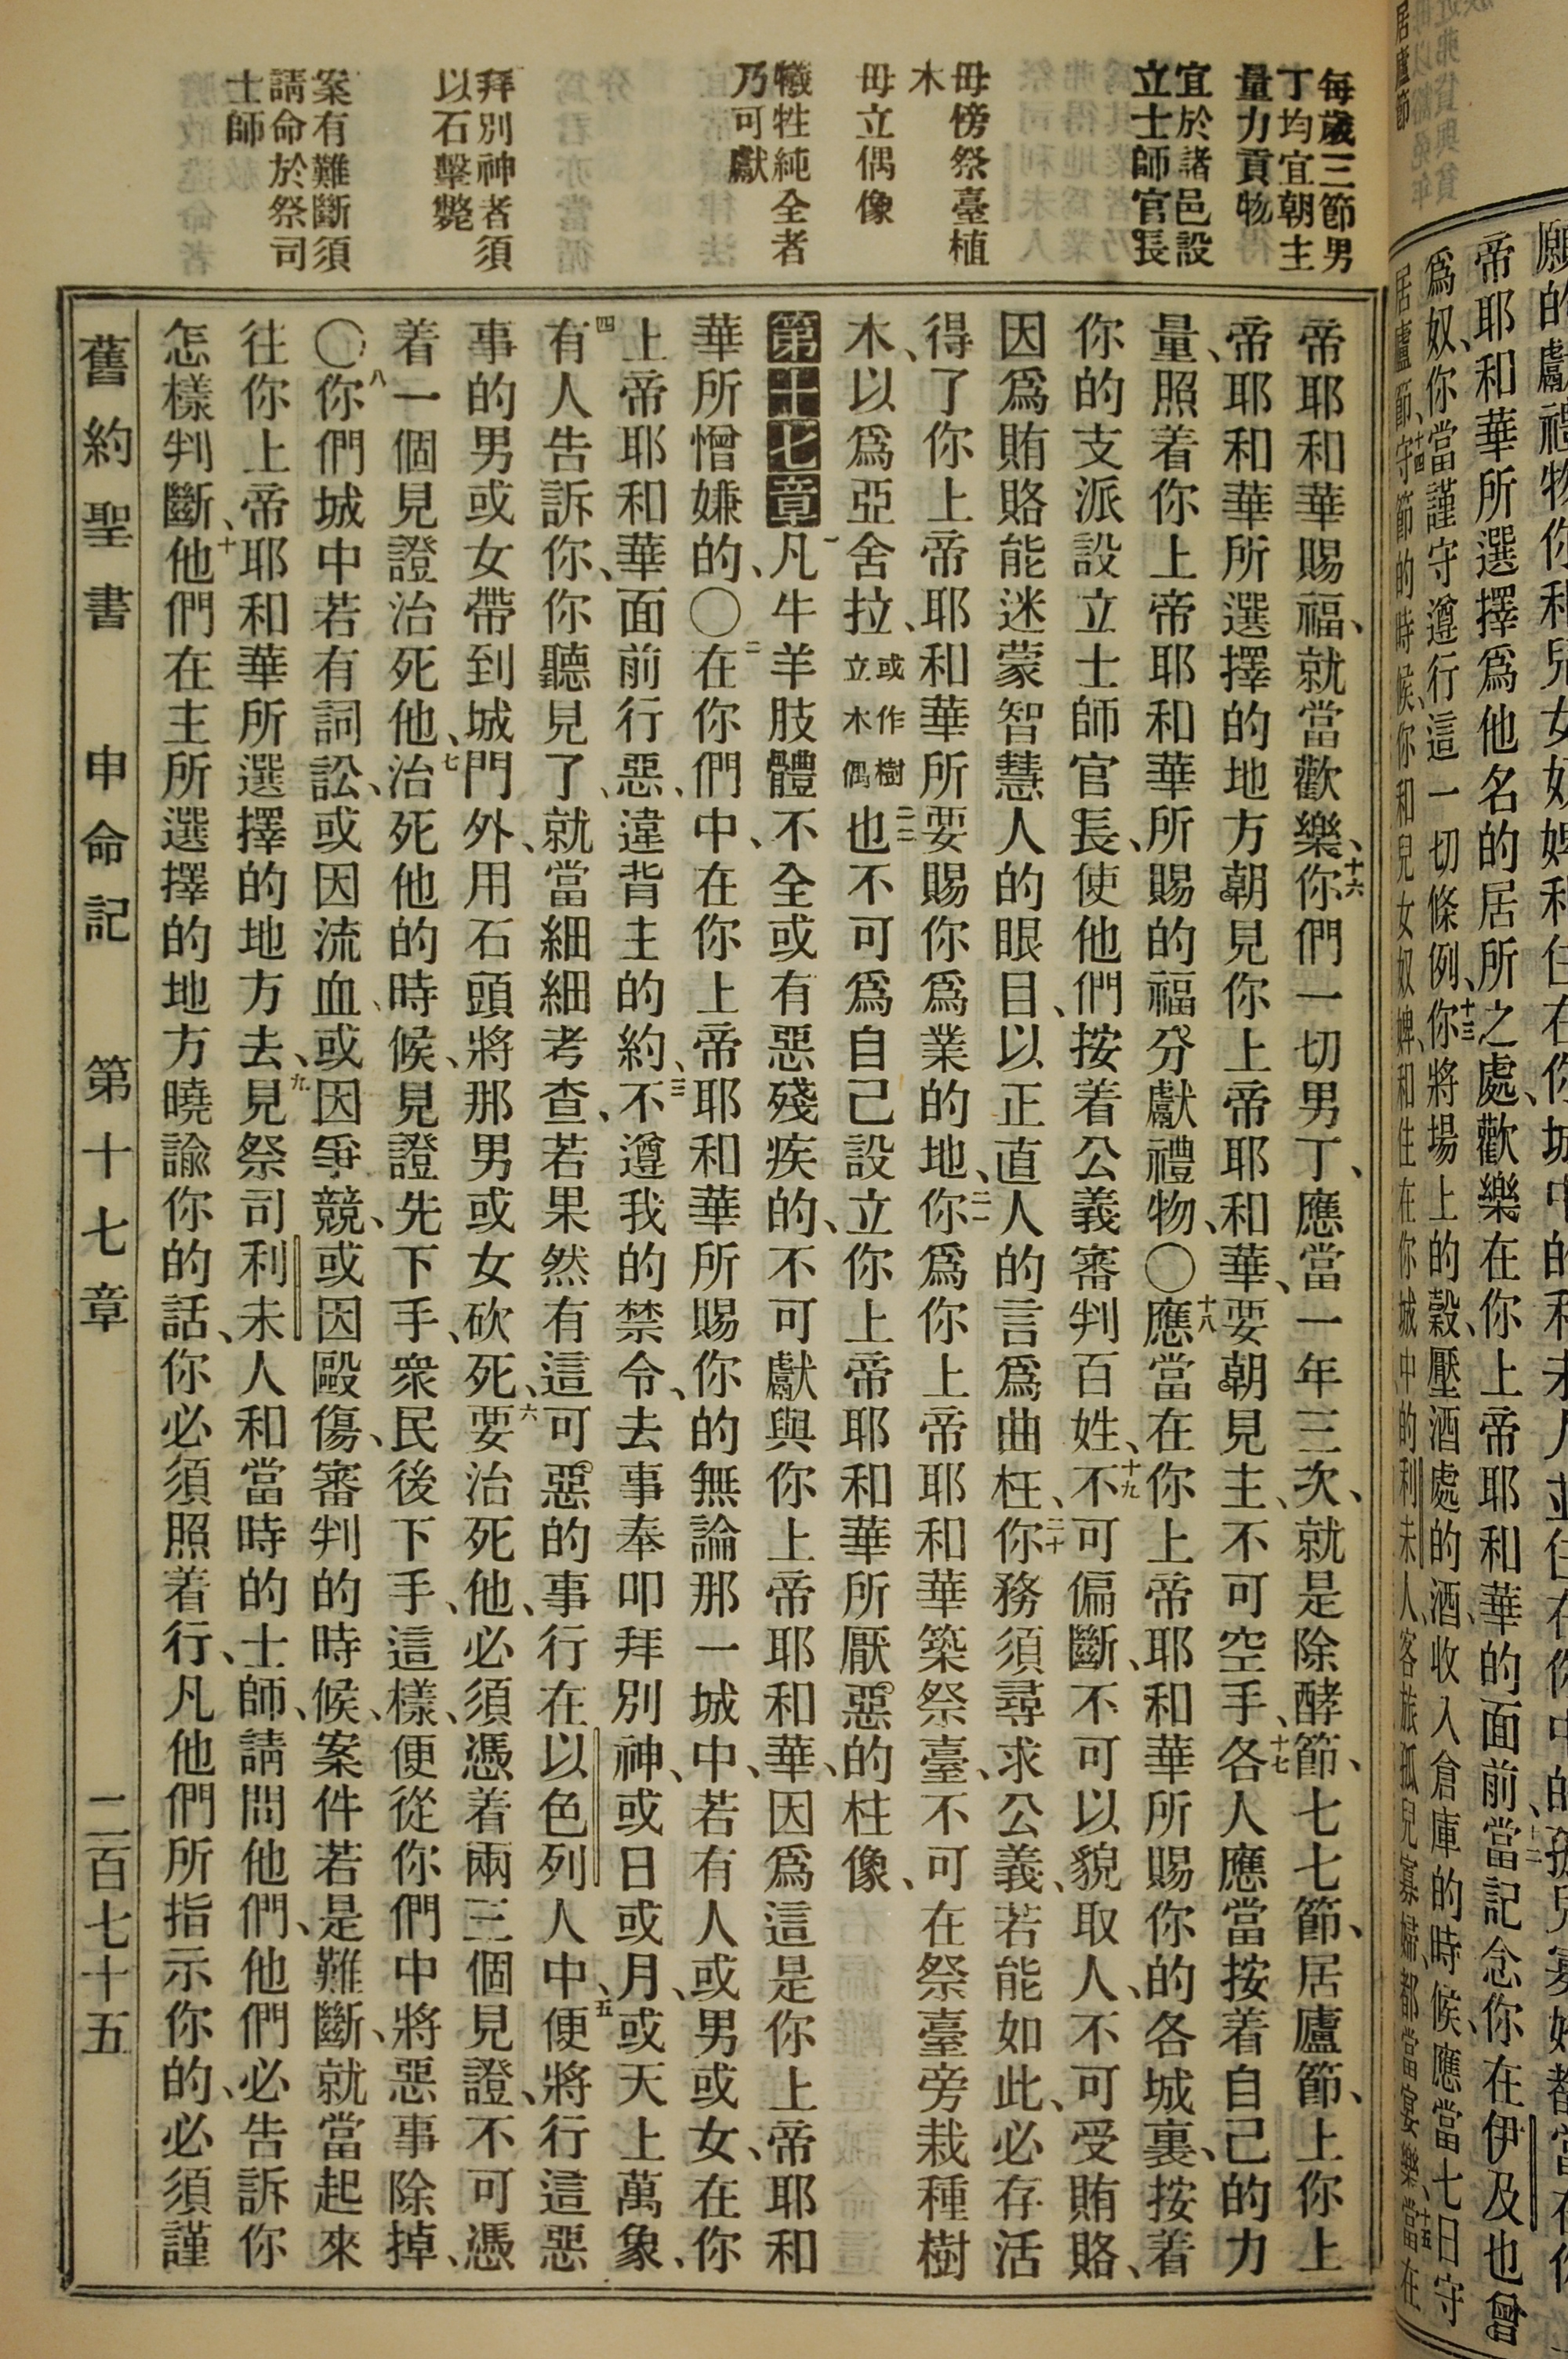 願的獻禮物你和兒女奴婢
帝耶和華所選擇爲他名的居所之處、歡樂在你上帝耶和華的面前十二當記念你在伊及也曾
爲奴、你當謹守遵行這一切條例、十三你將場上的穀、壓酒處的酒、收入倉庫的時候、應當七日守
居廬節、十四守節的時候、你和兒女奴婢、和住在你城中的利未人、客旅孤兒寡婦、都當宴樂、十五當在
每歲三節男
丁均宜朝主
量力貢物
宜於諸邑設
立士師官長
毋傍祭臺植
木
毋立偶像
犧牲純全者
乃可獻
拜別神者須
以石擊斃
案有難斷須
請命於祭司
士師
帝耶和華賜福、就當歡樂、十六你們一切男丁、應當一年三次、就是除酵節、七七節、居廬節、上你上
帝耶和華所選擇的地方朝見你上帝耶和華、要朝見主、不可空手、十七各人應當按着自己的力
量、照着你上帝耶和華所賜的福分獻禮物、〇十八應當在你上帝耶和華所賜你的各城裏、按着
你的支派設立士師官長、使他們按着公義審判百姓、十九不可偏斷、不可以貌取人、不可受賄賂、
因爲賄賂能迷蒙智慧人的眼目、以正直人的言爲曲枉、二十你務須尋求公義、若能如此、必存活
得了你上帝耶和華所要賜你爲業的地、二一你爲你上帝耶和華築祭臺、不可在祭臺旁栽種樹
木、以爲亞舍拉、或作樹立木偶二二也不可爲自己設立你上帝耶和華所厭惡的柱像、
第十七章 一凡牛羊肢體不全或有惡殘疾的、不可獻與你上帝耶和華、因爲這是你上帝耶和
華所憎嫌的、〇二在你們中、在你上帝耶和華所賜你的無論那一城中、若有人或男或女、在你
上帝耶和華面前行惡、違背主的約、三不遵我的禁令、去事奉叩拜別神、或日或月、或天上萬象、
四有人告訴你、你聽見了、就當細細考查、若果然有這可惡的事、行在以色列人中、五便將行這惡
事的男或女帶到城門外、用石頭將那男或女砍死、六要治死他、必須憑着兩三個見證、不可憑
着一個見證治死他、七治死他的時候、見證先下手、衆民後下手、這樣、便從你們中將惡事除掉、
〇八你們城中若有詞訟、或因流血、或因爭競、或因毆傷、審判的時候、案件若是難斷、就當起來
往你上帝耶和華所選擇的地方去、九見祭司利未人和當時的士師、請問他們、他們必告訴你
怎樣判斷、十他們在主所選擇的地方曉諭你的話、你必須照着行、凡他們所指示你的、必須謹
舊約聖書 申命記 第十七章 二百七十五